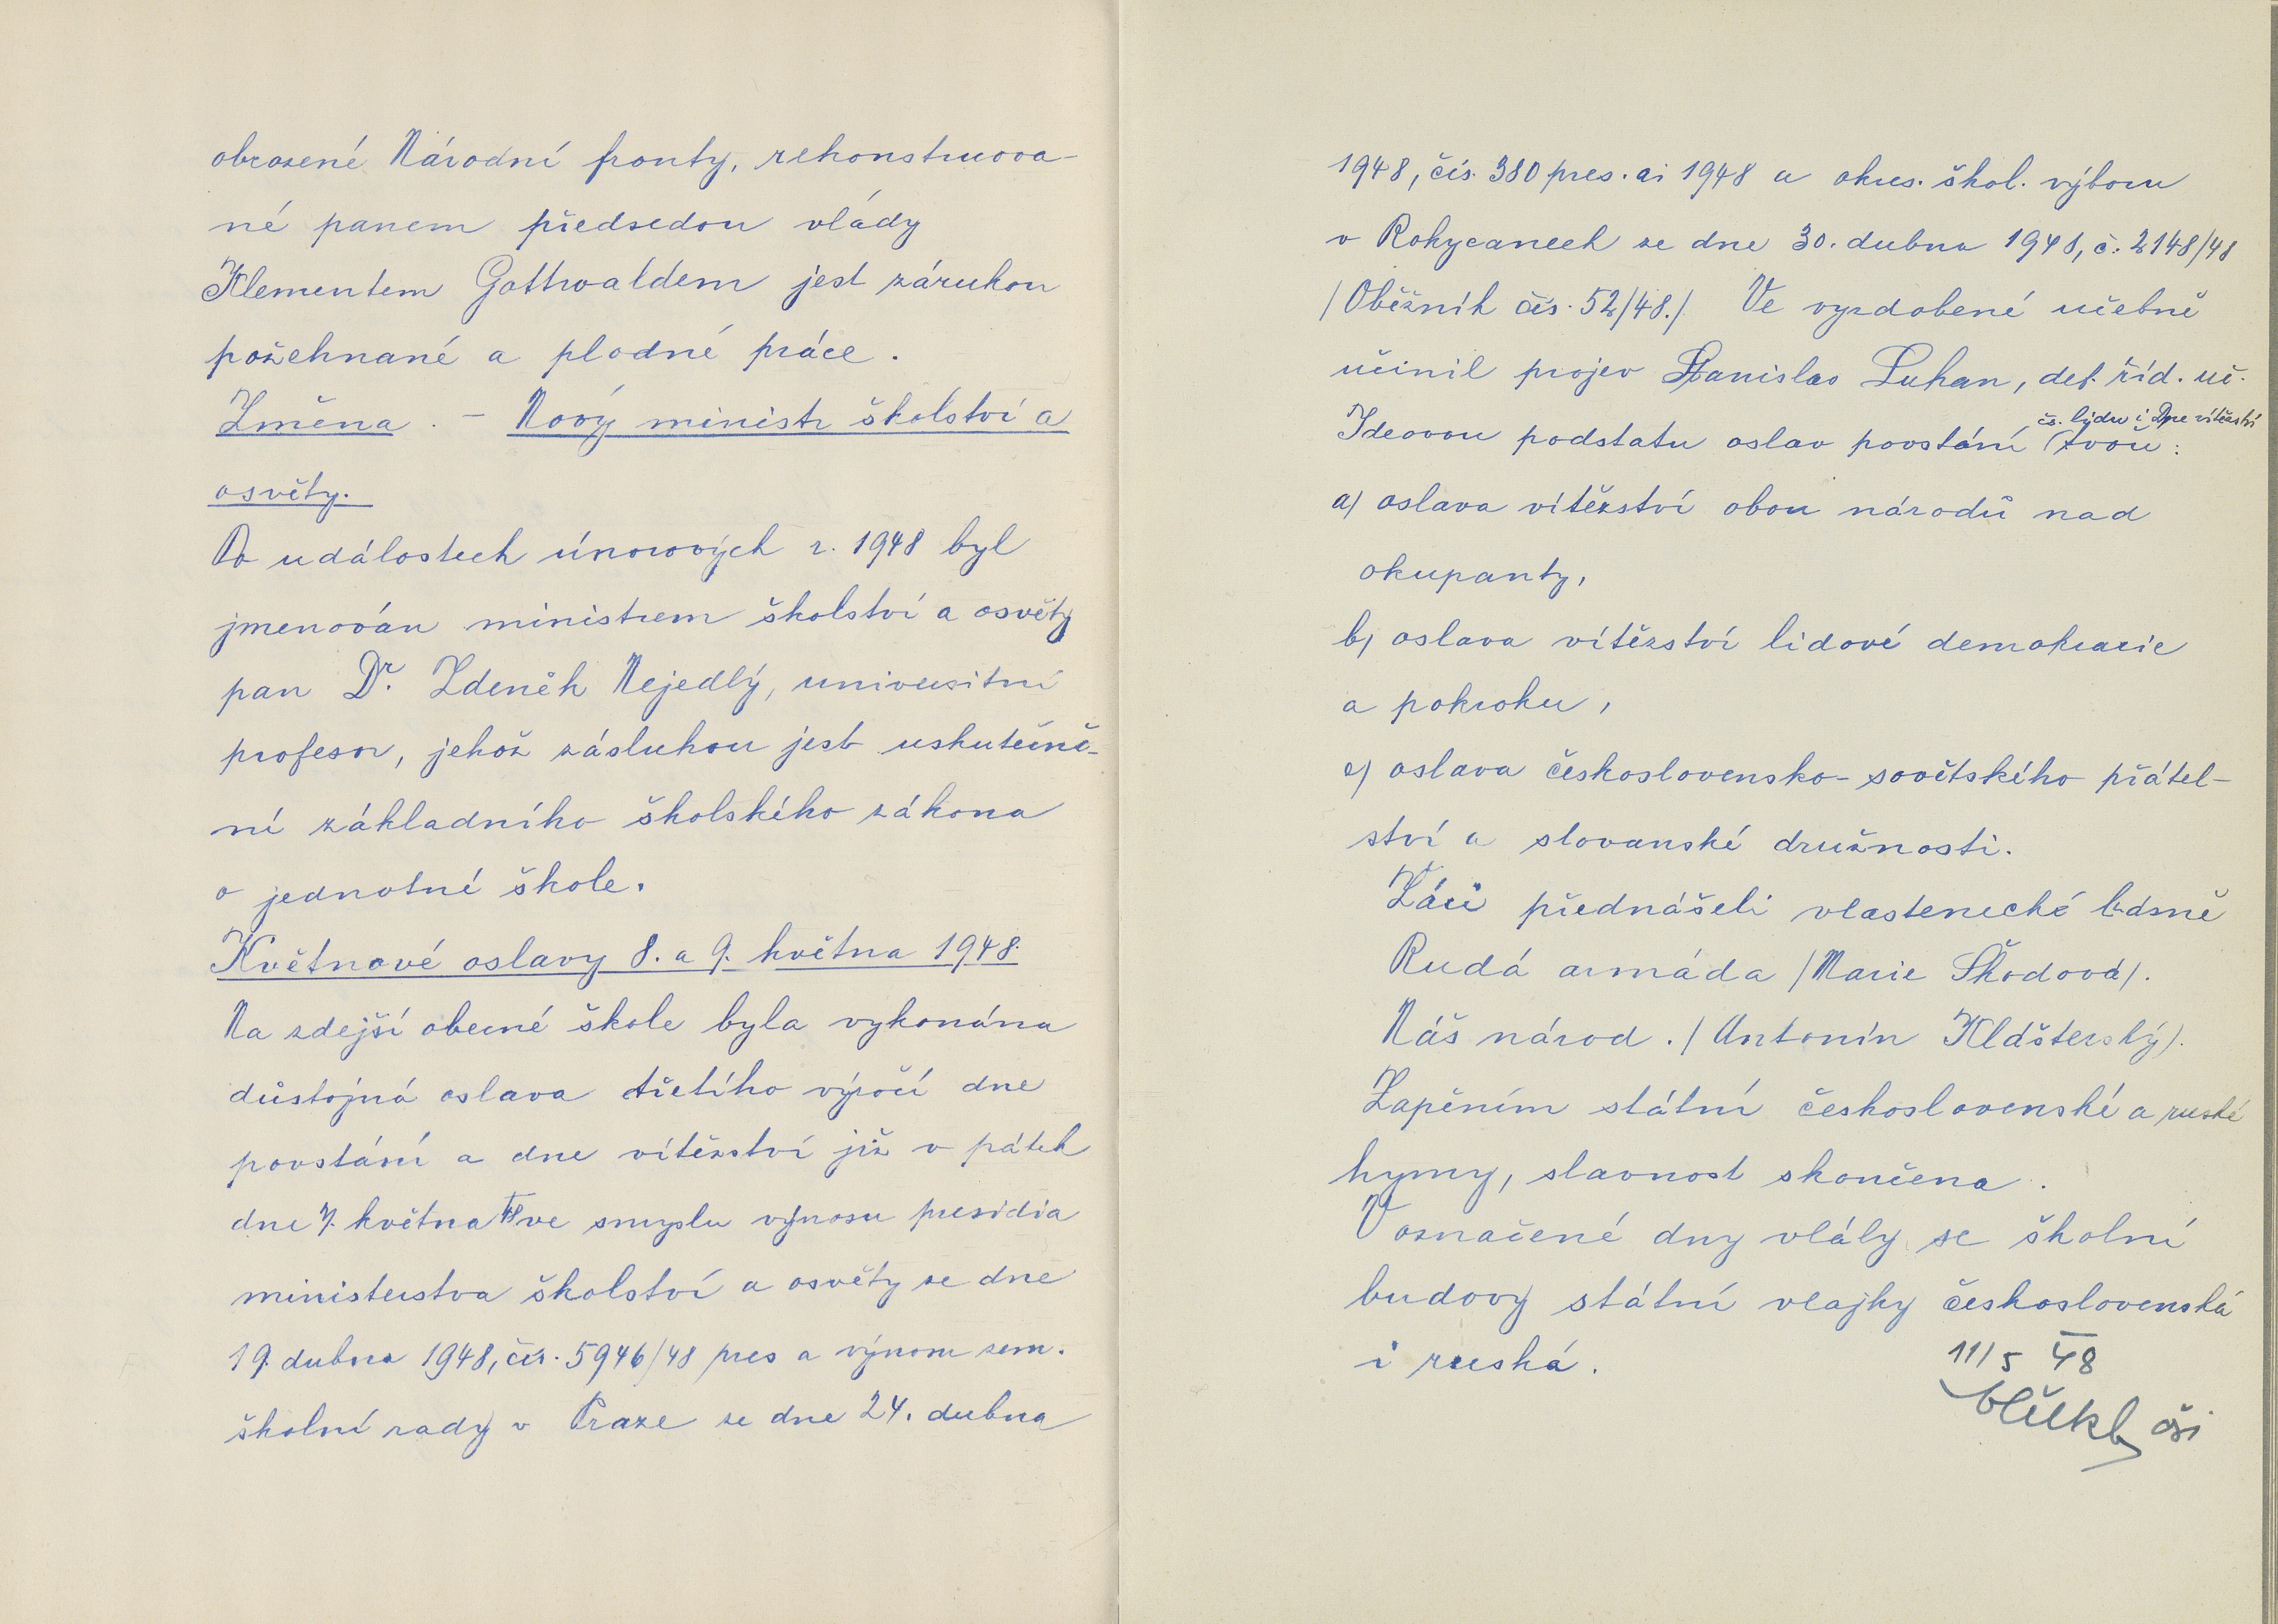 obrozené Národní fronty, rekonstruova-
né panem předsedou vlády
Klementem Gottwaldem jest zárukou
požehnané a plodné práce.
Změna. - Nový ministr školství a
osvěty.
Po událostech únorových r. 1948 byl
jmenován ministrem školství a osvěty
pan Dr. Zdeněk Nejedlý, universitní
profesor, jehož zásluhou jest uskutečně-
ní základního školského zákona
o jednotné škole.
Květnové oslavy 8. a 9. května 1948.
Na zdejší obecné škole byla vykonána
důstojná oslava třetího výročí dne
povstání a dne vítězství již v pátek
dne 7. května 48 ve smyslu výnosu presidia
ministerstva školství a osvěty ze dne
19. dubna 1948, čís. 5946/48 pres a výnosu zem.
školní rady v Praze ze dne 24. dubna
1948, čís. 380 pres. ai 1948 a okres. škol. výboru
v Rokycanech ze dne 30. dubna 1948, č. 2148/48
/Oběžník čís. 52/48./ Ve vyzdobené učebně
učinil projev Stanislav Luhan, def. říd. uč.
čs. lidu i Dne vítězství
Ideovou podstatu oslav povstání tvoří:
a/ oslava vítězství obou národů nad
okupanty,
b/ oslava vítězství lidové demokracie
a pokroku,
c/ oslava československo-sovětského přátel-
ství a slovanské družnosti.
Žáci přednášeli vlastenecké básně
Rudá armáda /Marie Škodová/.
Náš národ. /Antonín Klášterský/.
Zapěním státní československé a ruské
hymy, slavnost skončena.
V označené dny vlály se školní
budovy státní vlajky československá
i ruská.
11/5 48